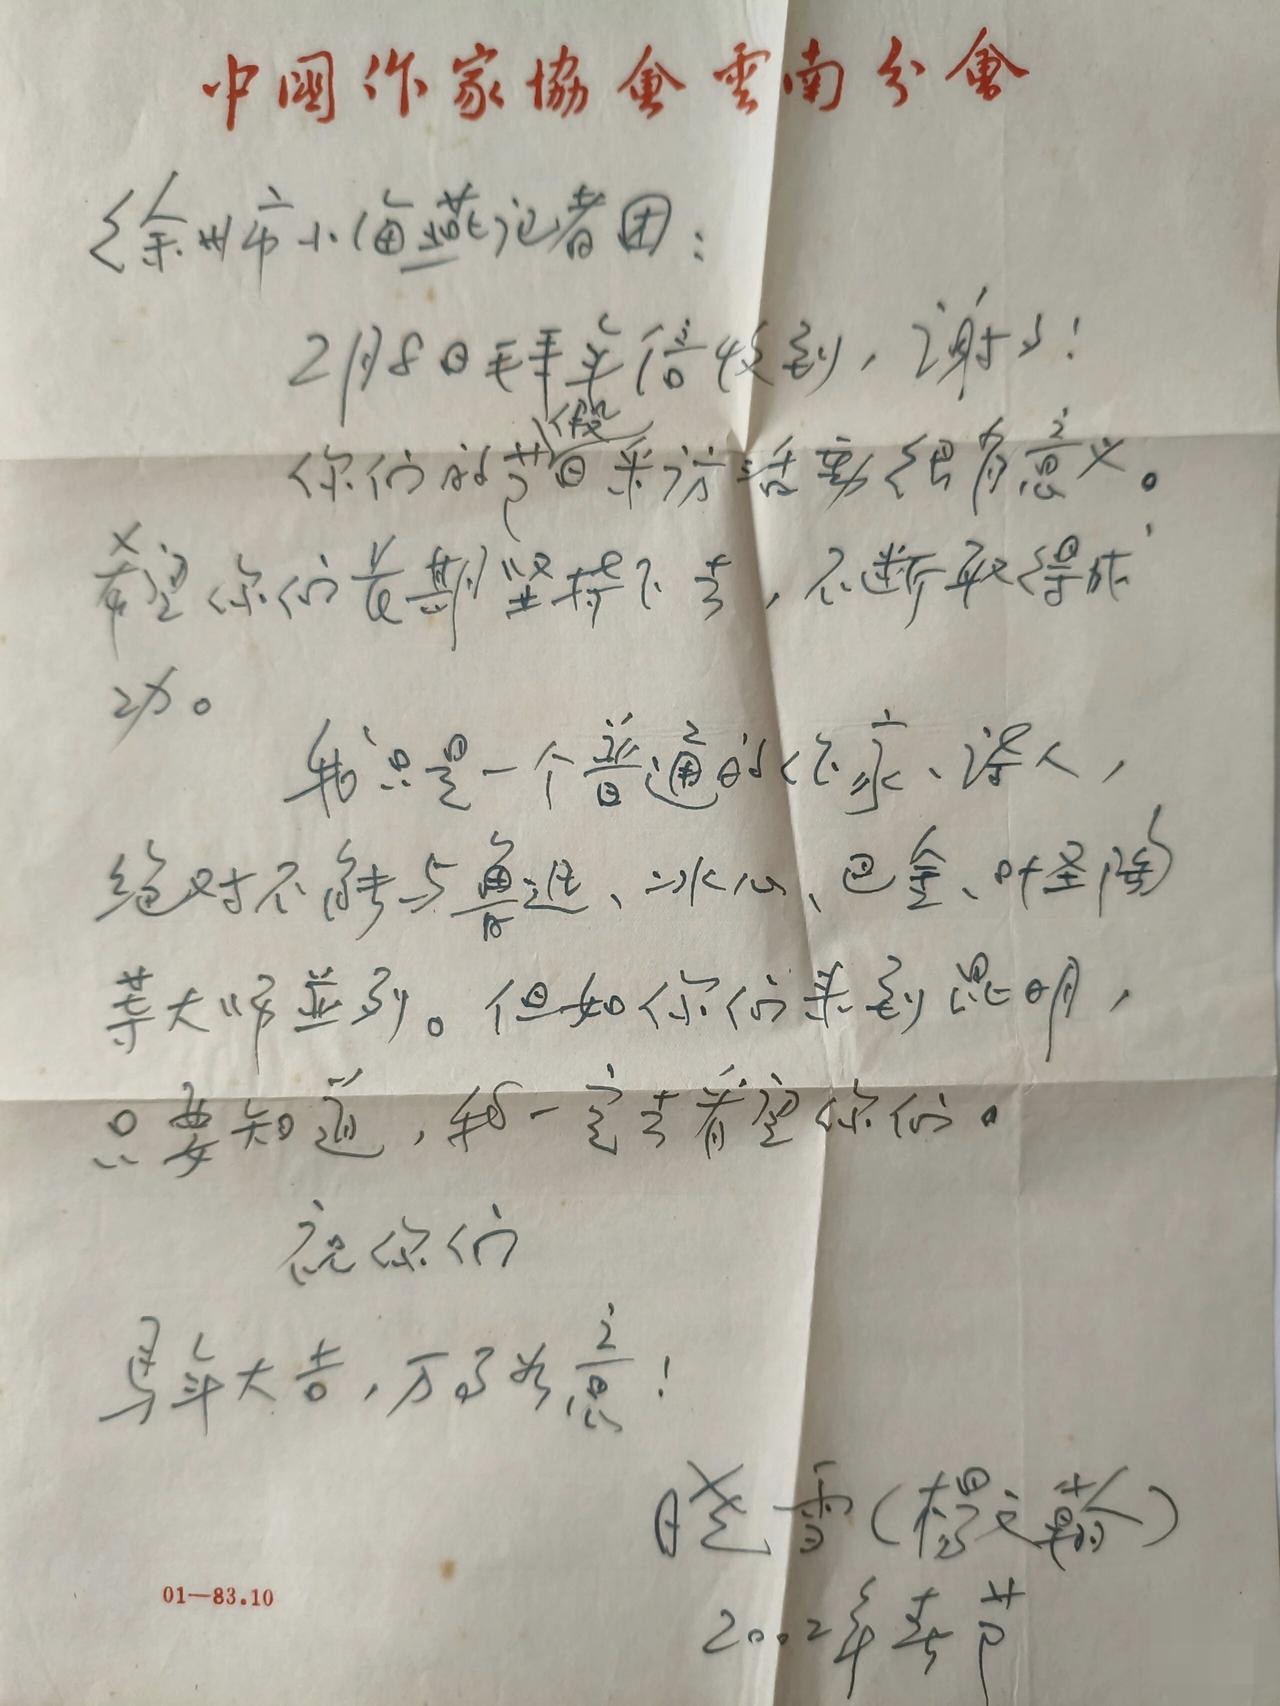 中國作家協會雲南分會
徐州市小海燕记者团：
2月8日毛笔信收到，谢谢！
你们的节假日采访活动很有意义。
希望你们长期坚持下去，不断取得成
功。
我只是一个普通的作家、诗人，
绝对不能与鲁迅、冰心、巴金、叶圣陶
等大师並列。但如你们来到昆明，
只要知道，我一定去看望你们。
祝你们
马年大吉，万事如意！
晓雪（杨文翰）
2002年春节
01—83.10